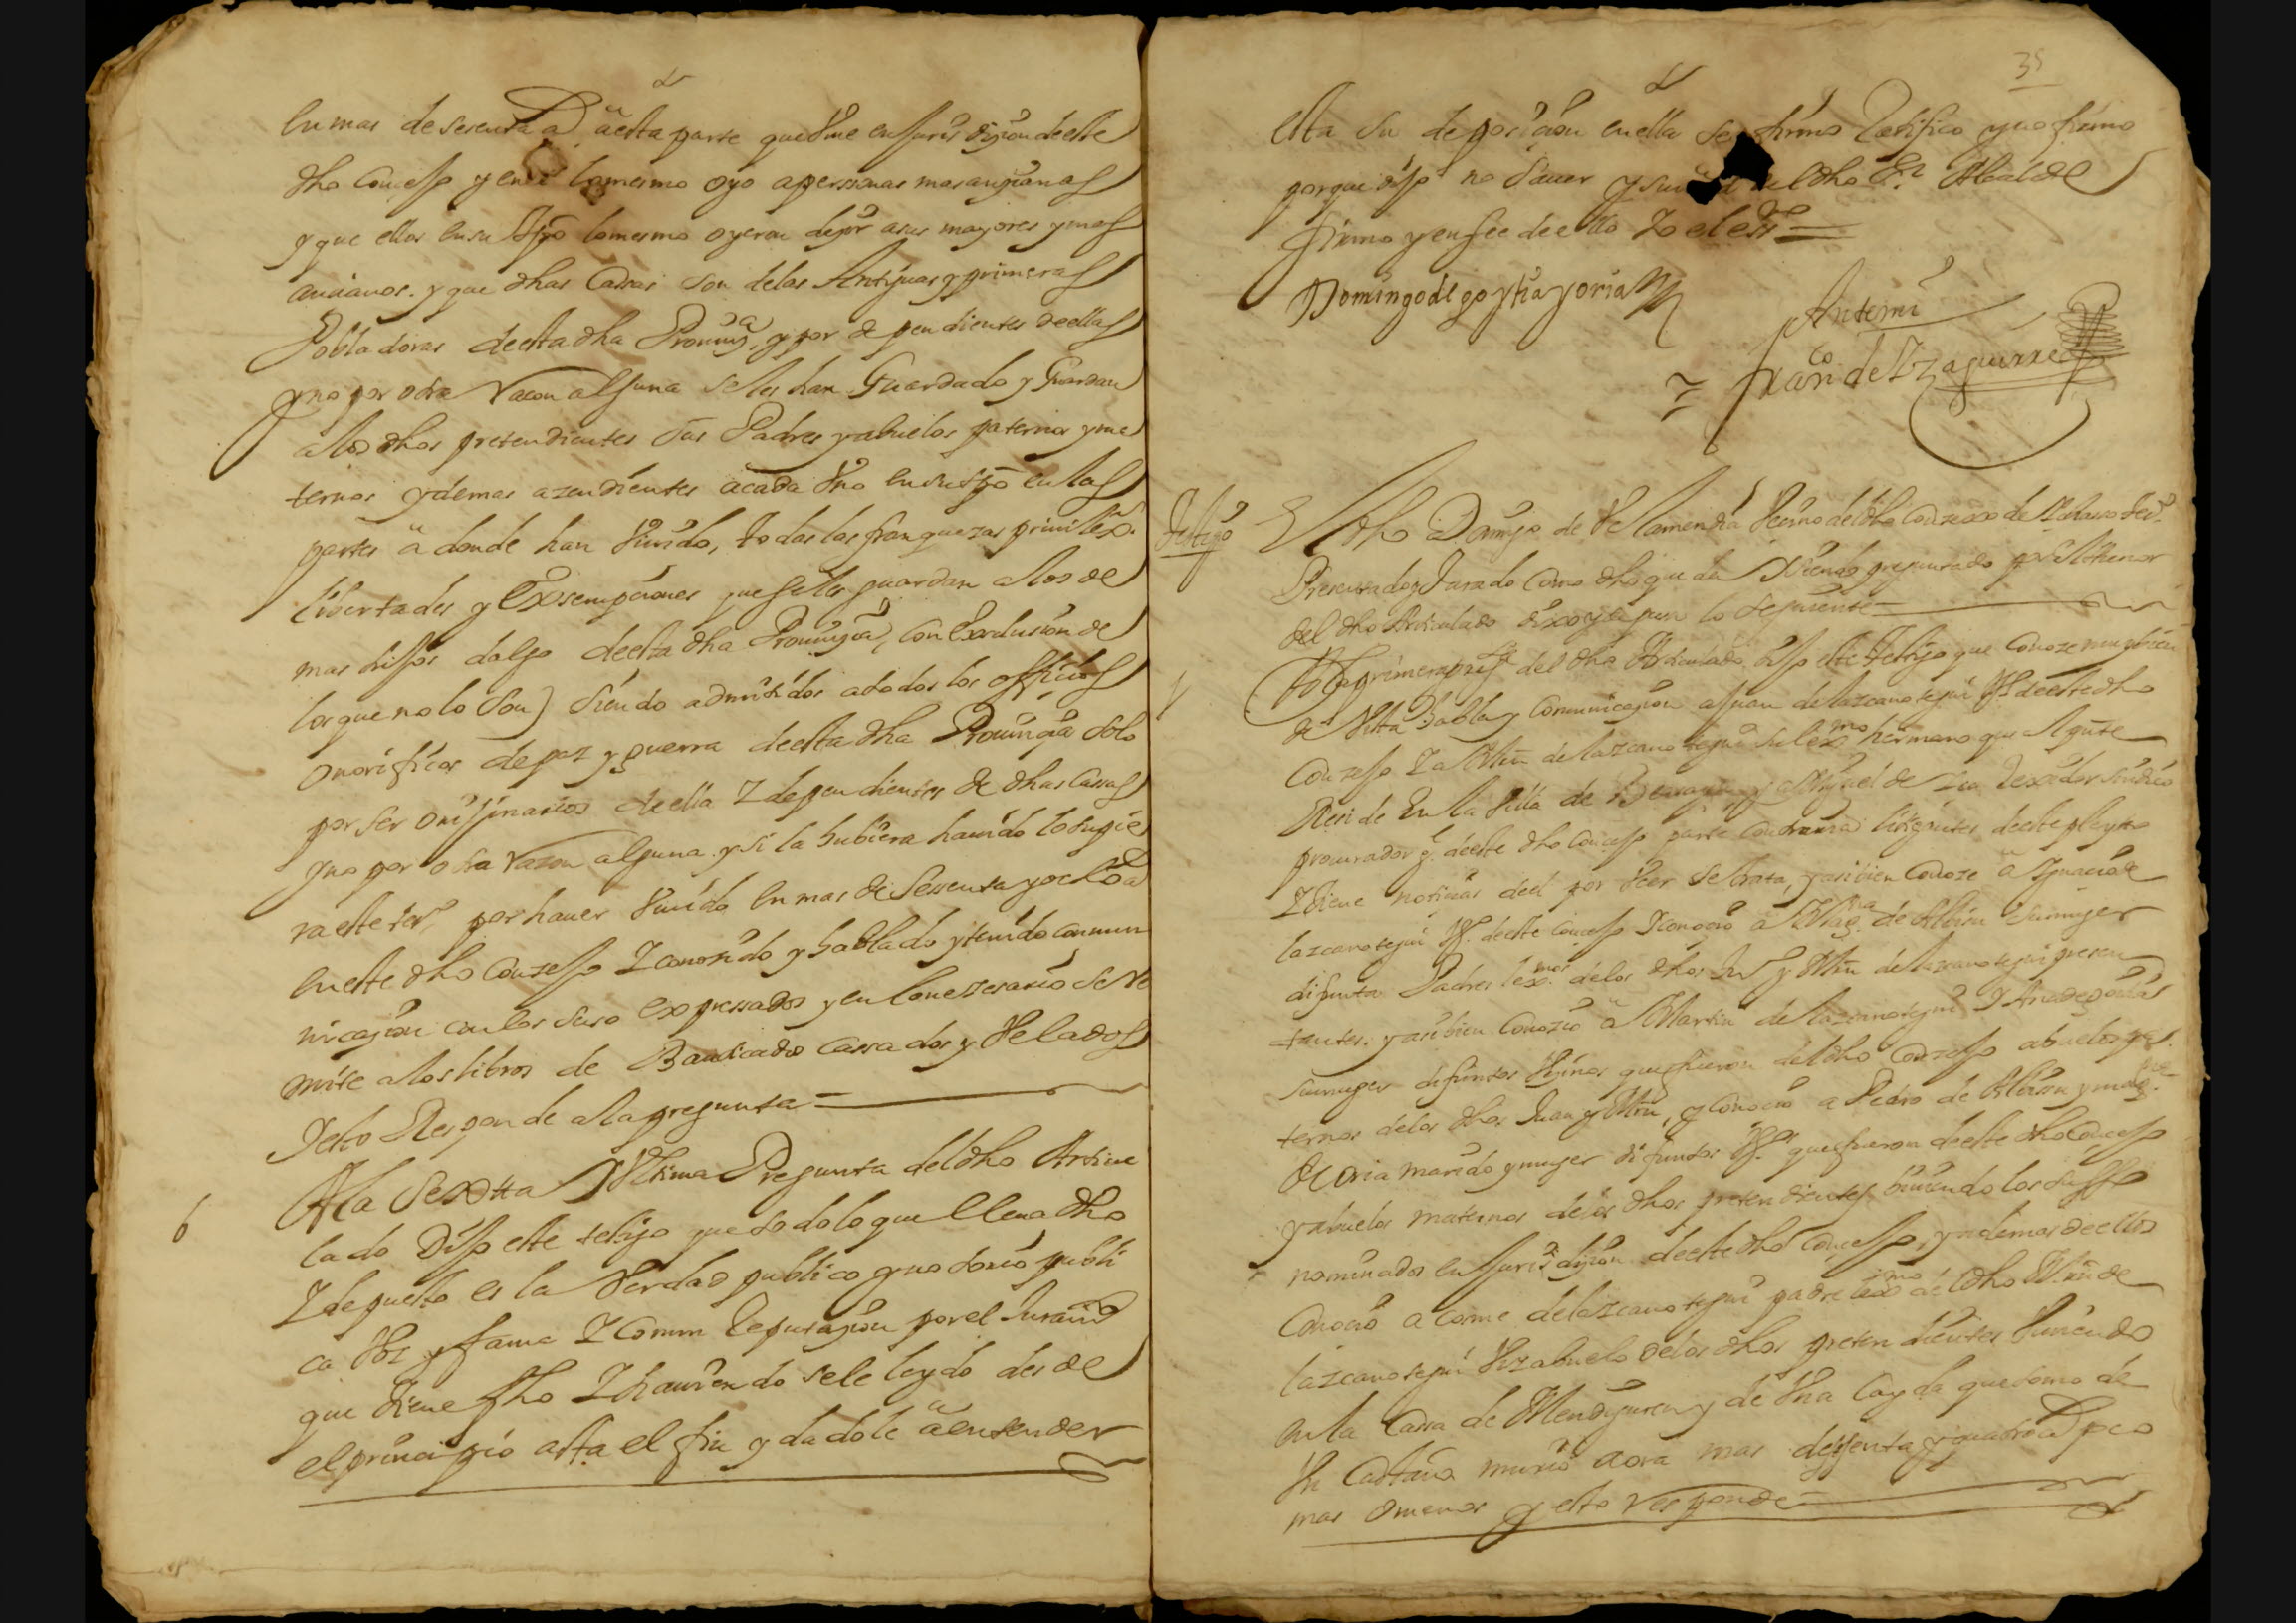 en mas de sesenta a. a esta parte que Vive en Jurisdizion de este
dho Concejo y en el lo mesmo oyo a perssonas mas anzianas
y que ellos en su tpo lo mesmo oyeron dezir a sus mayores y mas
ancianos. y que dhas Cassas son de las Antiguas y primeras
Pobladoras de esta dha Prouinçia, y por dependientes de ellas
y no por otra racon alguna se les han Guardado y Guardan
a los dhos pretendientes sus Padres y abuelos paternos y ma
ternos y demas azendientes a cada Vno en su tpo en las
partes a donde han Viuido, todas las franquezas priuilex.
libertades y Exsempciones que se les guardan a los de
mas hijos dalgo de esta dha Prouinçia, con Exclusion de
los que no lo son) siendo admitidos a todos los officios
onorificos de paz y guerra de esta dha Prouinçia solo
por ser orijinarios de ella Y dependientes de dhas Cassas
y no por otra razon alguna y si la hubiera hauido lo supie
ra este to. por hauer Viuido en mas de Sessenta y ocho a.
en este dho Conzejo Y conozido y hablado y tenido comun
nicazion con los suso expressados y en lo nezesario se re
mite a los libros de Bautizados Cassados y Velados
Y esto Responde a la pregunta =
6 A la Sexta Y Vltima Pregunta del dho Articu
lado Dijo este testigo que todo lo que lleua dho
Y depuesto es la Verdad publico y notorio publi
ca Voz y fama Y Comun Reputazion por el Juramto
que tiene fho Y hauiendosele leydo desde
el principio asta el fin y dadole a entender
35
esta su deposiçion en ella se afirmo Ratifico y no firmo
porque dijo no sauer y su md el dho Sr Alcalde
firmo y en fee de ello Yo el essno =
Domingo de goytia y oria
Antemi
Franco de Yzaguirre
Testigo El dho Domingo de Velamendia Vecino del dho Conzexo
Presentado y Jurado como dho queda Siendo preguntado por el thenor
del dho Articulado dixo y depuso lo siguiente =
1 A la primera preg.ta del dho Articulado, dijo este Testigo que Conoze muy bien
de Vista habla y Comunicazion a Juan de lazcanotegui Vo de este dho
Conzejo Y a Mrn de lazcanotegui su lexmo hermano que al presente
Reside En la Villa de y a Miguel de Rexidor Sindico
procurador g. de este dho Concejo parte Contraria litigantes de este pleyto
Y tiene notiçias de el por Ver Se trata, y asibien Conoze a Ygnacio de
lazcanotegui Vo. de este Concejo Y conoçio a Mag.na de Albisu su muger
difunta Padres lexmos de los dhos Jun y Mrn de lazcanotegui presen
tantes. y asibien Conozio a Martin de lazcanotegui Y Ana de
su muger difuntos Vezinos que fueron del dho Conzejo abuelos pa
ternos de los dhos Juan y Mrn, y Conoçio a Pedro de Albisu y mag.na
de Oria marido y muger difuntos Vos. que fueron de este dho Concejo
y abuelos maternos de los dhos pretendientes Viuiendo los suso
nominados en Jurisdizion de este dho Concejo, y a demas de ellos
Conoçio a Cosme de lazcanotegui padre lexmo del dho Mrn de
lazcanotegui Vizabuelo de los dhos pretendientes Viuiendo
en la Cassa de Mendiguren y de Vna Cayda que tomo de
Vn Castaño murio aora mas de sesenta y quatro a. poco
mas o menos y esto responde =